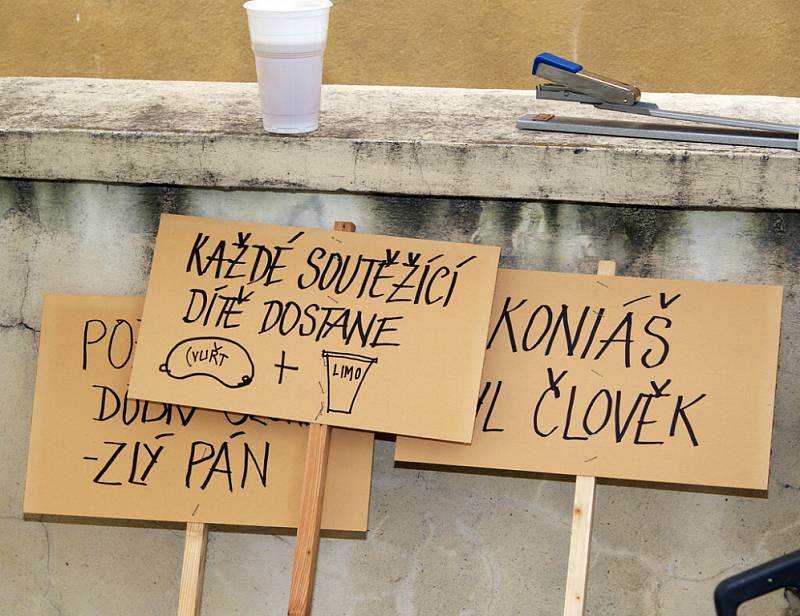 KAŽDÉ SOUTĚŽÍCÍ
DÍTĚ DOSTANE
VUŘT + LIMO
-ZLÝ PÁN
KONIÁŠ
ČLOVĚK